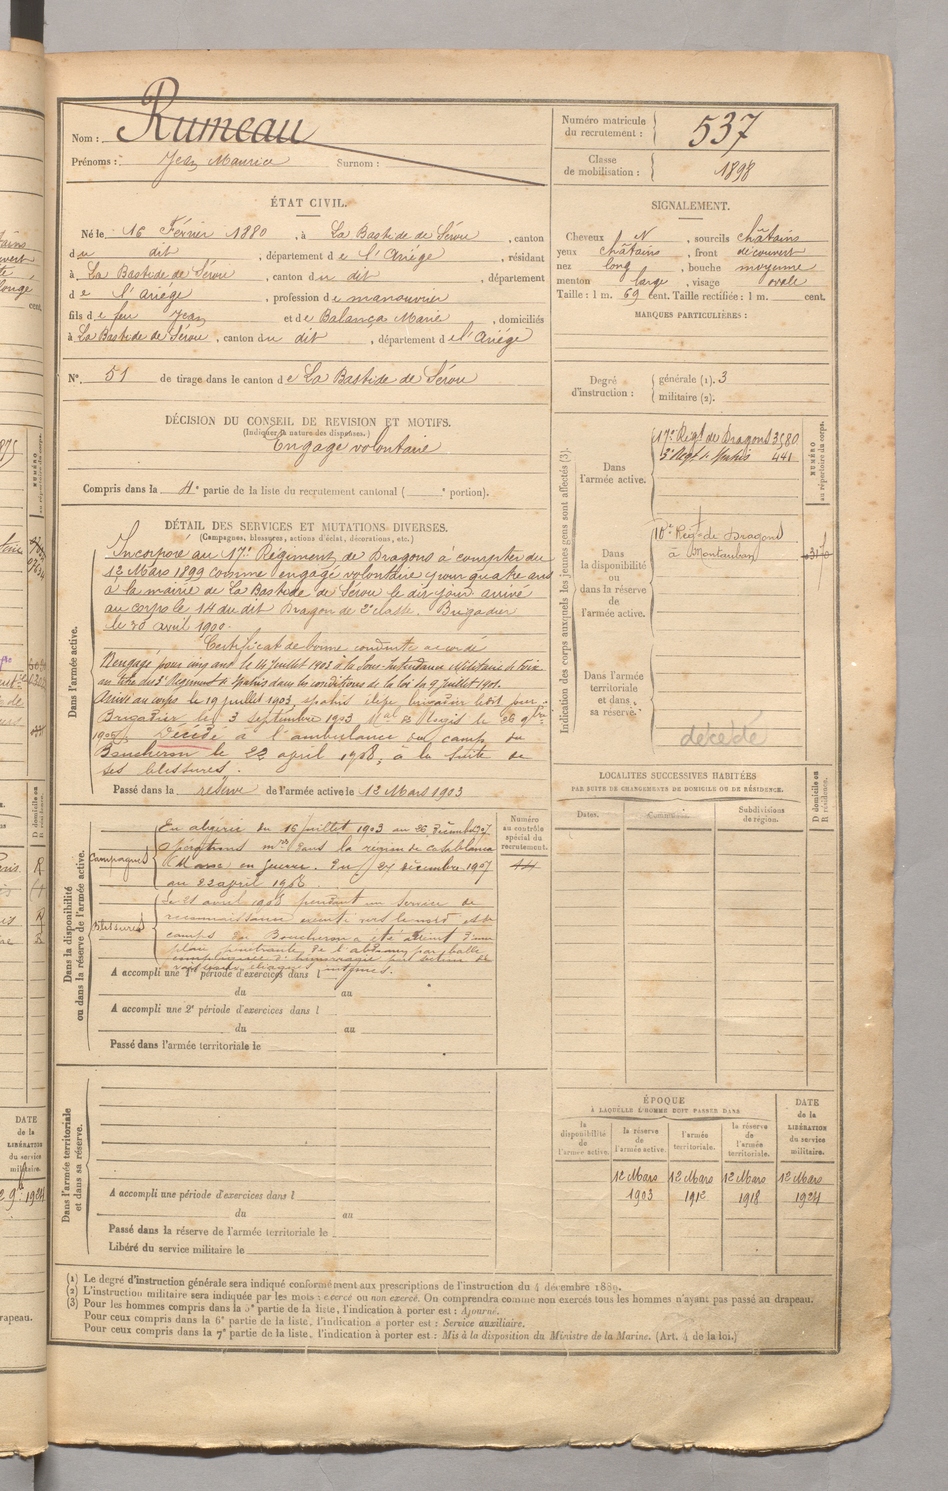 Nom : Rumeau
Prénoms : Jean Maurice Surnom :
Numéro matricule du recrutement : 537
Classe de mobilisation : 1898
ÉTAT CIVIL.
Né le 16 Février 1880, à La Bastide de Sérou, canton
du dit, département de l'Ariège, résidant
à La Bastide de Sérou, canton du dit, département
de l'Ariège, profession de manouvrier
fils de feu Jean et de Balança Marie, domiciliés
à La Bastide de Sérou, canton du dit, département de l'Ariège
N° 51 de tirage dans le canton de La Bastide de Sérou
SIGNALEMENT.
Cheveux N, sourcils châtains
yeux châtains, front découvert
nez long, bouche moyenne
menton large, visage ovale
Taille : 1 m. 69 cent. Taille rectifiée : 1 m. cent.
MARQUES PARTICULIÈRES :
Degré d'instruction : générale (1). 3
militaire (2).
DÉCISION DU CONSEIL DE REVISION ET MOTIFS.
(Indiquer la nature des dispenses.)
Engagé volontaire
Compris dans la 4e partie de la liste du recrutement cantonal ( e portion).
DÉTAIL DES SERVICES ET MUTATIONS DIVERSES.
(Campagnes, blessures, actions d'éclat, décorations, etc.)
Dans l'armée active.
Incorporé au 17e Régiment de Dragons à compter du
12 Mars 1899 comme engagé volontaire pour quatre ans
à la mairie de La Bastide de Sérou le dit jour arrivé
au corps le 14 du dit Dragon de 2e classe. Brigadier
le 30 avril 1900.
Certificat de bonne conduite accordé
Rengagé pour cinq ans le 14 Juillet 1903 à la Sous-Intendance Militaire de Foix
au titre du 3e Régiment de Spahis dans les conditions de la loi du 9 Juillet 1901.
Arrivé au corps le 19 juillet 1903 spahis
Brigadier le 3 Septembre 1903 Mal des Logis le 26 9bre
1905. Décédé à l'ambulance du camp du
Boucheron le 22 april 1908, à la suite de
ses blessures.
Passé dans la réserve de l'armée active le 12 Mars 1903
Indication des corps auxquels les jeunes gens sont affectés (3).
NUMÉRO au répertoire du corps.
Dans l'armée active.
17e Régt de Dragons 3580
3e Régt de Spahis 441
Dans la disponibilité ou dans la réserve de l'armée active.
10e Régt de Dragons
à Montauban
Dans l'armée territoriale et dans sa réserve.
décédé
LOCALITÉS SUCCESSIVES HABITÉES
PAR SUITE DE CHANGEMENTS DE DOMICILE OU DE RÉSIDENCE.
Dates. Communes. Subdivisions de région.
D domicile ou R résidence.
Dans la disponibilité ou dans la réserve de l'armée active.
Numéro au contrôle spécial du recrutement.
Campagnes
En algérie du 16 juillet 1903 au 26 Décembre 1907
opérations mres dans la région de Casablanca
(Maroc) en guerre. Du 27 décembre 1907
au 22 april 1908
Blessures
Le 21 avril 1908 pendant un service de
reconnaissance exécuté vers le nord est du
camp du Boucheron a été atteint d'une
plaie pénétrante de l'abdomen par balle
compliquée d'hémorragie par section de
vaisseaux iliaques internes.
A accompli une 1re période d'exercices dans l
du au
A accompli une 2e période d'exercices dans l
du au
Passé dans l'armée territoriale le
Dans l'armée territoriale et dans sa réserve.
A accompli une période d'exercices dans l
du au
Passé dans la réserve de l'armée territoriale le
Libéré du service militaire le
ÉPOQUE
À LAQUELLE L'HOMME DOIT PASSER DANS
la disponibilité de l'armée active. la réserve de l'armée active. l'armée territoriale. la réserve de l'armée territoriale.
DATE de la LIBÉRATION du service militaire.
12 Mars 12 Mars 12 Mars 12 Mars
1903 1912 1918 1924
(1) Le degré d'instruction générale sera indiqué conformément aux prescriptions de l'instruction du 4 décembre 1889.
(2) L'instruction militaire sera indiquée par les mots : exercé ou non exercé. On comprendra comme non exercés tous les hommes n'ayant pas passé au drapeau.
(3) Pour les hommes compris dans la 5e partie de la liste, l'indication à porter est : Ajourné.
Pour ceux compris dans la 6e partie de la liste, l'indication à porter est : Service auxiliaire.
Pour ceux compris dans la 7e partie de la liste, l'indication à porter est : Mis à la disposition du Ministre de la Marine. (Art. 4 de la loi.)
DATE de la LIBÉRATION du service militaire.
1924
drapeau.